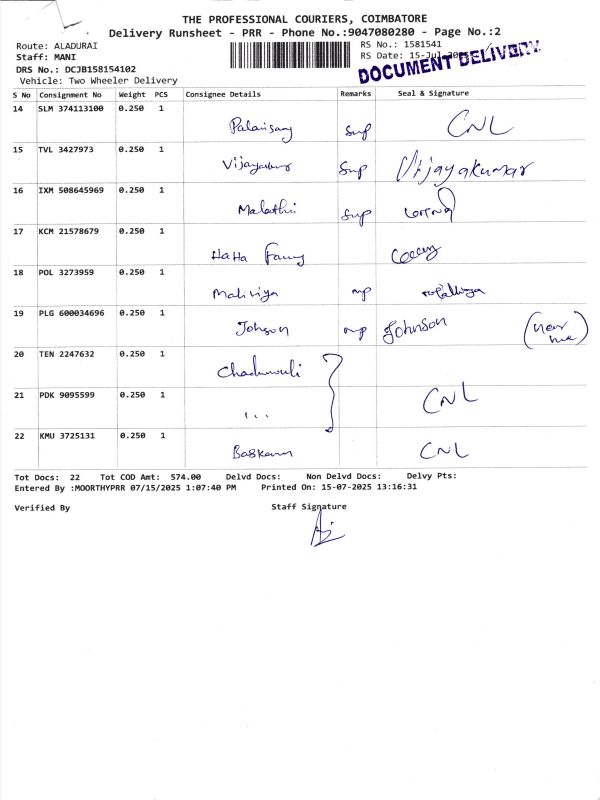 THE PROFESSIONAL COURIERS, COIMBATORE
Delivery Runsheet - PRR - Phone No.:9047080280 - Page No.:2
Route: ALADURAI RS No.: 1581541
Staff: MANI RS Date: 15-Jul-2025
DRS No.: DCJB158154102 DOCUMENT DELIVERY
Vehicle: Two Wheeler Delivery
S No Consignment No Weight PCS Consignee Details Remarks Seal & Signature
14 SLM 374113100 0.250 1
CNL
15 TVL 3427973 0.250 1
Vijayakumar Vijayakumar
16 IXM 508645969 0.250 1
Malathi
17 KCM 21578679 0.250 1
18 POL 3273959 0.250 1
19 PLG 600034696 0.250 1
Johnson Johnson (near me)
20 TEN 2247632 0.250 1
21 PDK 9095599 0.250 1
CNL
22 KMU 3725131 0.250 1
CNL
Tot Docs: 22 Tot COD Amt: 574.00 Delvd Docs: Non Delvd Docs: Delvy Pts:
Entered By :MOORTHYPRR 07/15/2025 1:07:40 PM Printed On: 15-07-2025 13:16:31
Verified By Staff Signature